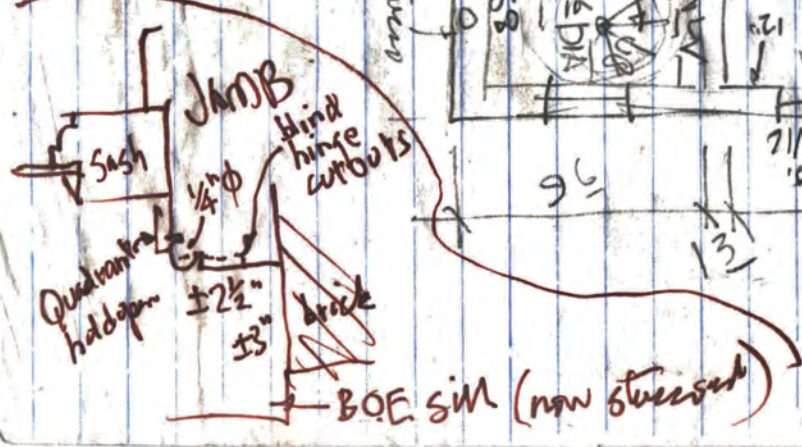 JAMB
Sash
blind
hinge
cutouts
1/4"φ
Quadrant
holdopen
±2 1/2"
±3"
brick
BOE sill (now stuccoed)
96
13
12"
DIA